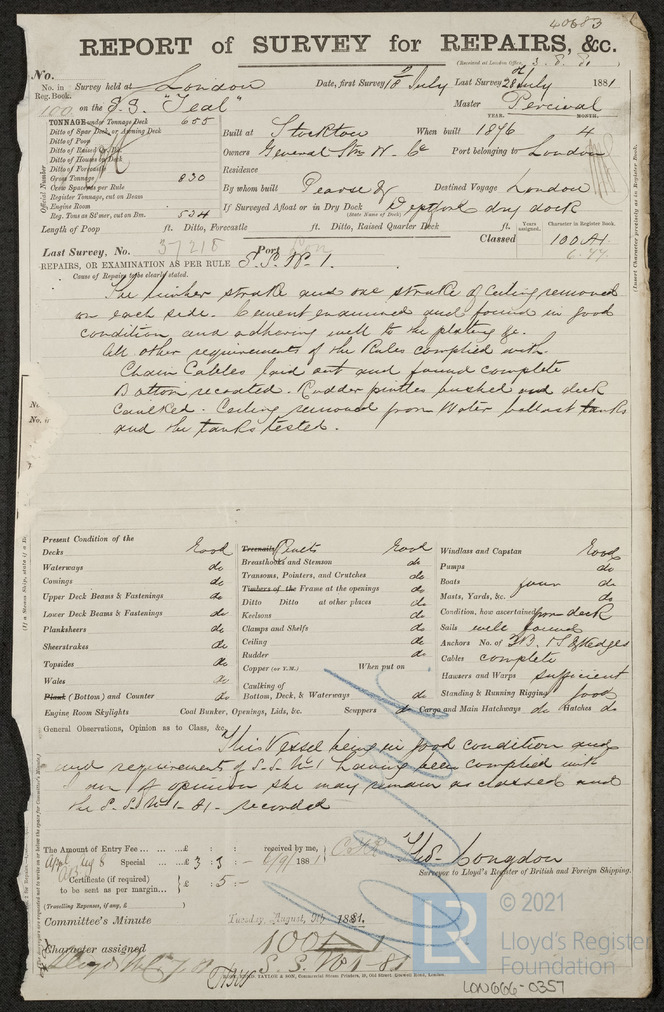 40683
REPORT of SURVEY for REPAIRS, &c.
(Received at London Office, 3. 8. 81)
No.
No. in Reg. Book. Survey held at London Date, first Survey 18th July Last Survey 28th July 1881
100 on the S.S. "Teal" Master Percival
TONNAGE under Tonnage Deck 655
Ditto of Spar Deck, or Awning Deck
Ditto of Poop
Ditto of Raised Qr. Dk.
Ditto of Houses on Deck
Ditto of Forecastle
Gross Tonnage 830
Crew Space as per Rule
Register Tonnage, cut on Beam
Engine Room
Reg. Tons as St'mer, cut on Bm. 524
Official Number
YEAR. MONTH.
Built at Stockton When built 1876 4
Owners General Stm N. Co Port belonging to London
Residence
By whom built Pearse & Destined Voyage London
If Surveyed Afloat or in Dry Dock Deptford dry dock
(State Name of Dock)
Length of Poop ft. Ditto, Forecastle ft. Ditto, Raised Quarter Deck ft.
Years assigned. Character in Register Book.
Last Survey, No. 37218 Port Lon Classed 100 A1
6.77
(Insert Character precisely as in Register Book.
REPAIRS, OR EXAMINATION AS PER RULE S.S. No 1.
Cause of Repairs to be clearly stated.
The limber strake and one strake of Ceiling removed
on each side. Cement examined and found in good
condition and adhering well to the plating &c.
All other requirements of the Rules complied with
Chain Cables laid out and found complete
Bottom recoated. Rudder pintles bushed and deck
caulked. Ceiling removed from Water ballast tanks
and the tanks tested.
Present Condition of the
Decks Good
Waterways do
Comings do
Upper Deck Beams & Fastenings do
Lower Deck Beams & Fastenings do
Planksheers do
Sheerstrakes do
Topsides do
Wales do
Plank (Bottom) and Counter do
Engine Room Skylights Coal Bunker, Openings, Lids, &c. Scuppers do Cargo and Main Hatchways do Hatches do
Treenails Rivets Good
Breasthooks and Stemson do
Transoms, Pointers, and Crutches do
Timbers of the Frame at the openings do
Ditto Ditto at other places do
Keelsons do
Clamps and Shelfs do
Ceiling do
Rudder do
Copper (or Y.M.) When put on
Caulking of Bottom, Deck, & Waterways do
Windlass and Capstan Good
Pumps do
Boats four do
Masts, Yards, &c. do
Condition, how ascertained from deck
Sails well found
Anchors No. of 3B. 1S 2 Kedges
Cables complete
Hawsers and Warps sufficient
Standing & Running Rigging good
General Observations, Opinion as to Class, &c.
This Vessel being in good condition and
and requirements of S.S. No 1 having been complied with
I am of opinion she may remain as classed and
the S.S. No 1-81- recorded
The Amount of Entry Fee £ : : received by me,
Special £ 3 : 3 : - 6/9/1881
Certificate (if required) to be sent as per margin £ : 5 : -
(Travelling Expenses, if any, £ )
Thos. Congdon
Surveyor to Lloyd's Register of British and Foreign Shipping.
Committee's Minute Tuesday, August, 9th 1881.
Character assigned 100 A 1
S. S. No 1-81
© 2021
LR
Lloyd's Register
Foundation
LON666-0357